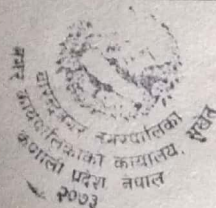 वीरेन्द्रनगर नगरपालिका
नगर कार्यपालिकाको कार्यालय, सुर्खेत
कर्णाली प्रदेश नेपाल
२०७३